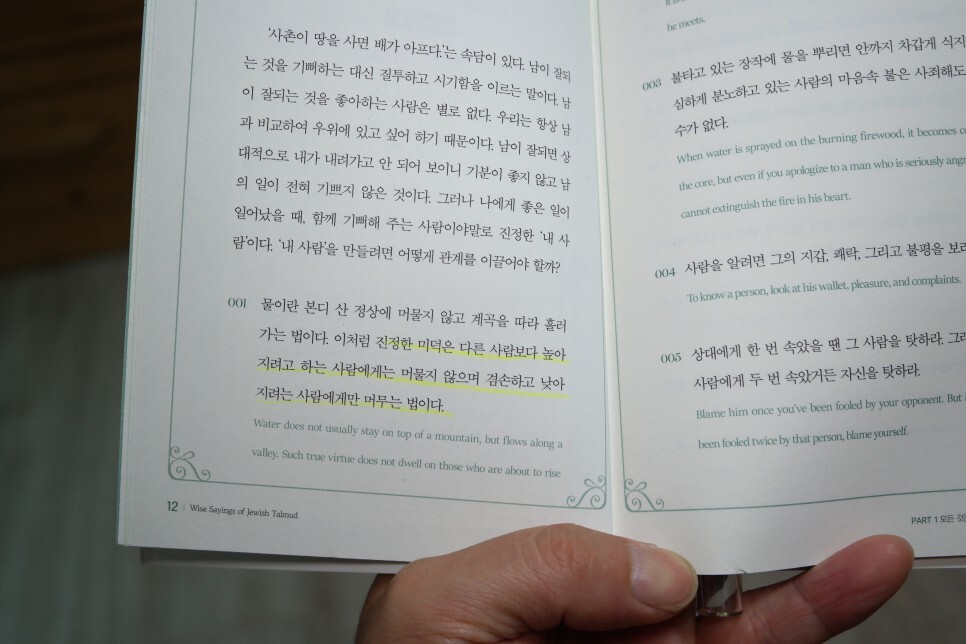 '사촌이 땅을 사면 배가 아프다.'는 속담이 있다. 남이 잘되
는 것을 기뻐하는 대신 질투하고 시기함을 이르는 말이다. 남
이 잘되는 것을 좋아하는 사람은 별로 없다. 우리는 항상 남
과 비교하여 우위에 있고 싶어 하기 때문이다. 남이 잘되면 상
대적으로 내가 내려가고 안 되어 보이니 기분이 좋지 않고 남
의 일이 전혀 기쁘지 않은 것이다. 그러나 나에게 좋은 일이
일어났을 때, 함께 기뻐해 주는 사람이야말로 진정한 '내 사
람'이다. '내 사람'을 만들려면 어떻게 관계를 이끌어야 할까?
001 물이란 본디 산 정상에 머물지 않고 계곡을 따라 흘러
가는 법이다. 이처럼 진정한 미덕은 다른 사람보다 높아
지려고 하는 사람에게는 머물지 않으며 겸손하고 낮아
지려는 사람에게만 머무는 법이다.
Water does not usually stay on top of a mountain, but flows along a
valley. Such true virtue does not dwell on those who are about to rise
12 | Wise Sayings of Jewish Talmud
he meets.
003 불타고 있는 장작에 물을 뿌리면 안까지 차갑게 식지
심하게 분노하고 있는 사람의 마음속 불은 사죄해도
수가 없다.
When water is sprayed on the burning firewood, it becomes
the core, but even if you apologize to a man who is seriously
cannot extinguish the fire in his heart.
004 사람을 알려면 그의 지갑, 쾌락, 그리고 불평을
To know a person, look at his wallet, pleasure, and complaints.
005 상대에게 한 번 속았을 땐 그 사람을 탓하라.
사람에게 두 번 속았거든 자신을 탓하라.
Blame him once you've been fooled by your opponent. But
been fooled twice by that person, blame yourself.
PART 1 모든